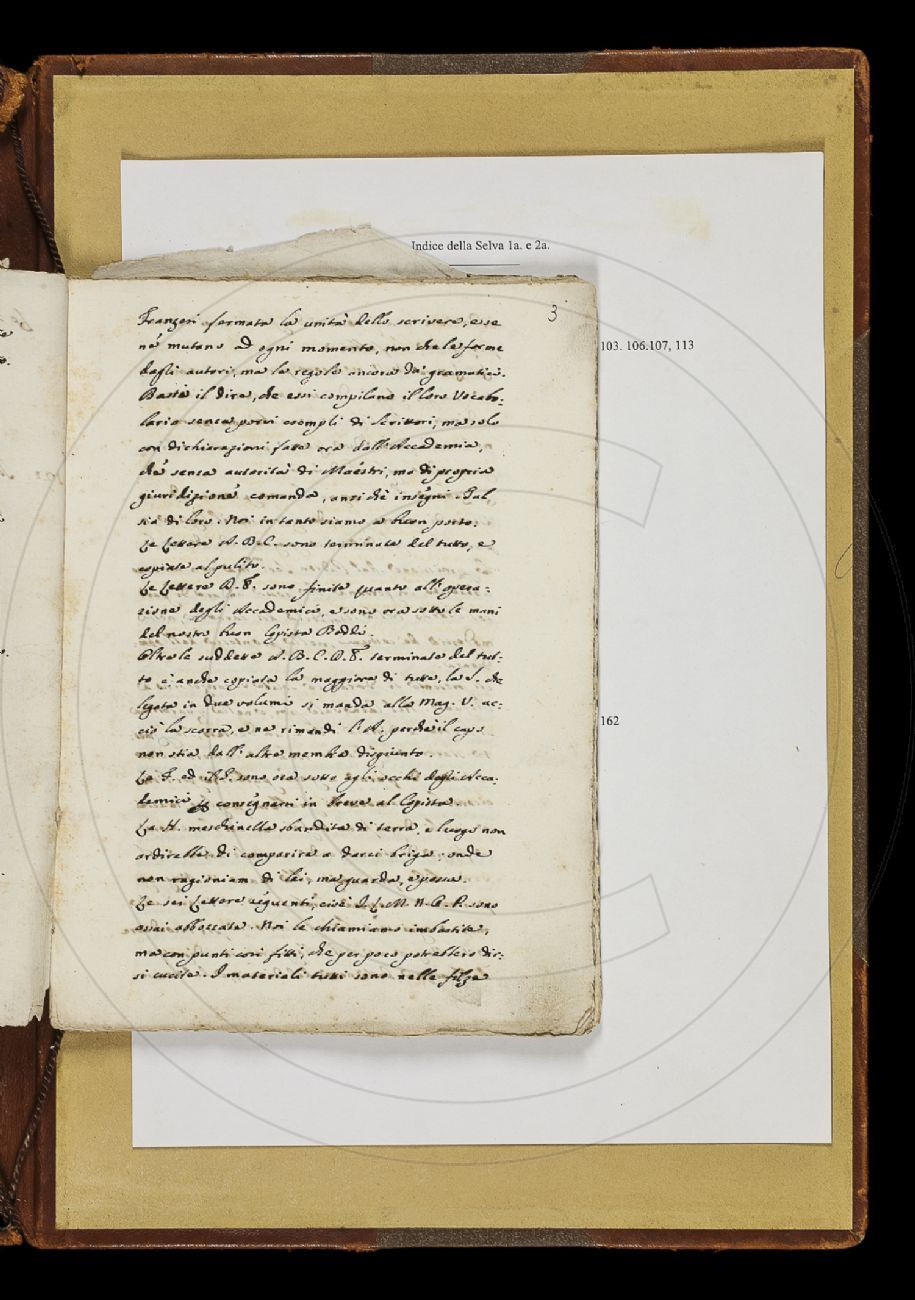 Indice della Selva 1a. e 2a.
103. 106.107, 113
162
3
Franzesi fermata la unità dello scrivere, e se
ne mutano ad ogni momento, non che le forme
degli autori, ma le regole ancora da' gramatici.
Basti il dire, che essi compilano il loro Vocabo:
lario senza porvi esempli di Scrittori, ma solo
con dichiarazioni fatte ora dall'Accademia,
che senza autorità di Maestri, ma di propria
giuridizione comanda, anzi che insegni. Tal
sia di loro. Noi intanto siamo a buon porto.
Le Lettere A. B. C. sono terminate del tutto, e
copiate al pulito.
Le Lettere D. E. sono finite quanto all'opera:
zione degli Accademici, e sono ora sotto le mani
del nostro buon Copista
Oltre le suddette A. B. C. D. E. terminate del tut:
to è anche copiata la maggiore di tutte, la S. che
legata in due volumi si manda alla Mag. V. ac:
ciò la scorra, e ne rimandi l'A. perché il capo
non stia dall'altre membra disgiunto.
La F. ed il G. sono ora sotto agli occhi degli Acca:
demici consegnarsi in breve al Copista.
La H. meschinella sbandita di terra, e luogo non
ardirebbe di comparire a darci briga; onde
non ragioniam di lei, ma guarda, e passa.
Le sei Lettere seguenti, cioè I. L. M. N. O. P. sono
assai abbozzate. Noi le chiamiamo imbastite,
ma con punti così fitti, che per poco potrebbero dir:
si cucite. I materiali tutti sono nelle filze